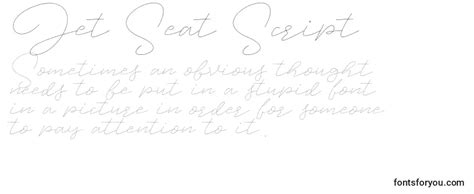 Jet Seat Script
Sometimes an obvious thought
needs to be put in a stupid font
in a picture in order for someone
to pay attention to it.
fontsforyou.com